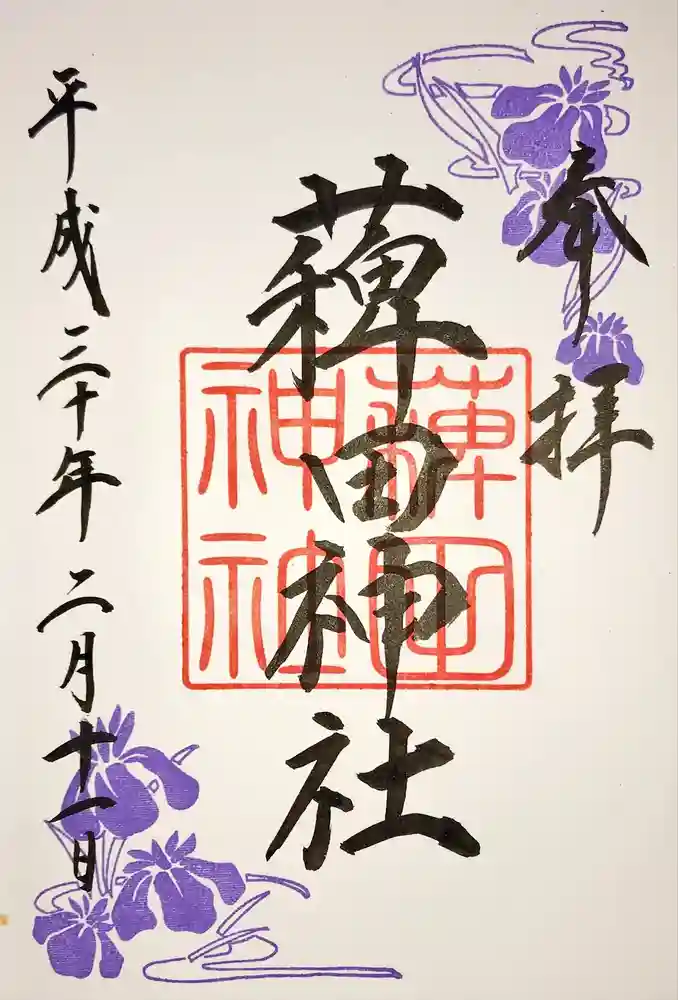 奉拝
薭田神社
薭田
神社
平成三十年二月十一日